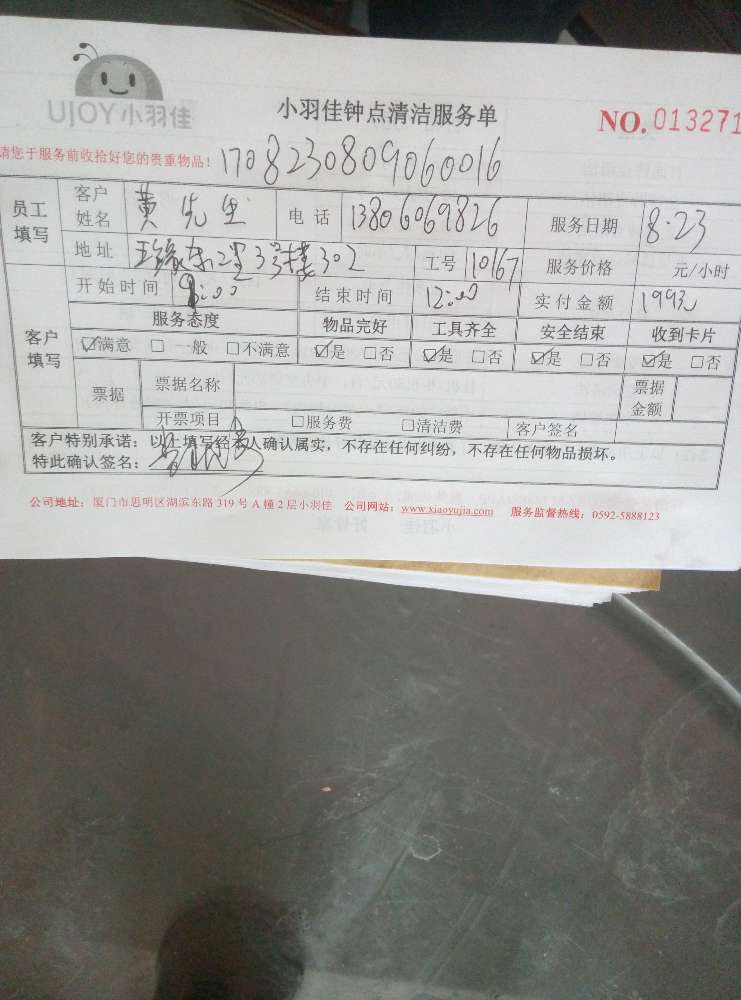 UJOY小羽佳
小羽佳钟点清洁服务单
NO. 013271
请您于服务前收拾好您的贵重物品! 1708230809060016
员工填写 客户姓名 黄先生 电话 13806069826 服务日期 8.23
地址 王缘东二里3号楼302 工号 10167 服务价格 元/小时
开始时间 9:00 结束时间 12:00 实付金额 199元
客户填写 服务态度 物品完好 工具齐全 安全结束 收到卡片
☑满意 □一般 □不满意 ☑是 □否 ☑是 □否 ☑是 □否 ☑是 □否
票据 票据名称 票据金额
开票项目 □服务费 □清洁费 客户签名
客户特别承诺：以上填写经本人确认属实，不存在任何纠纷，不存在任何物品损坏。
特此确认签名：
公司地址：厦门市思明区湖滨东路 319 号 A 幢 2 层小羽佳 公司网站：www.xiaoyujia.com 服务监督热线：0592-5888123